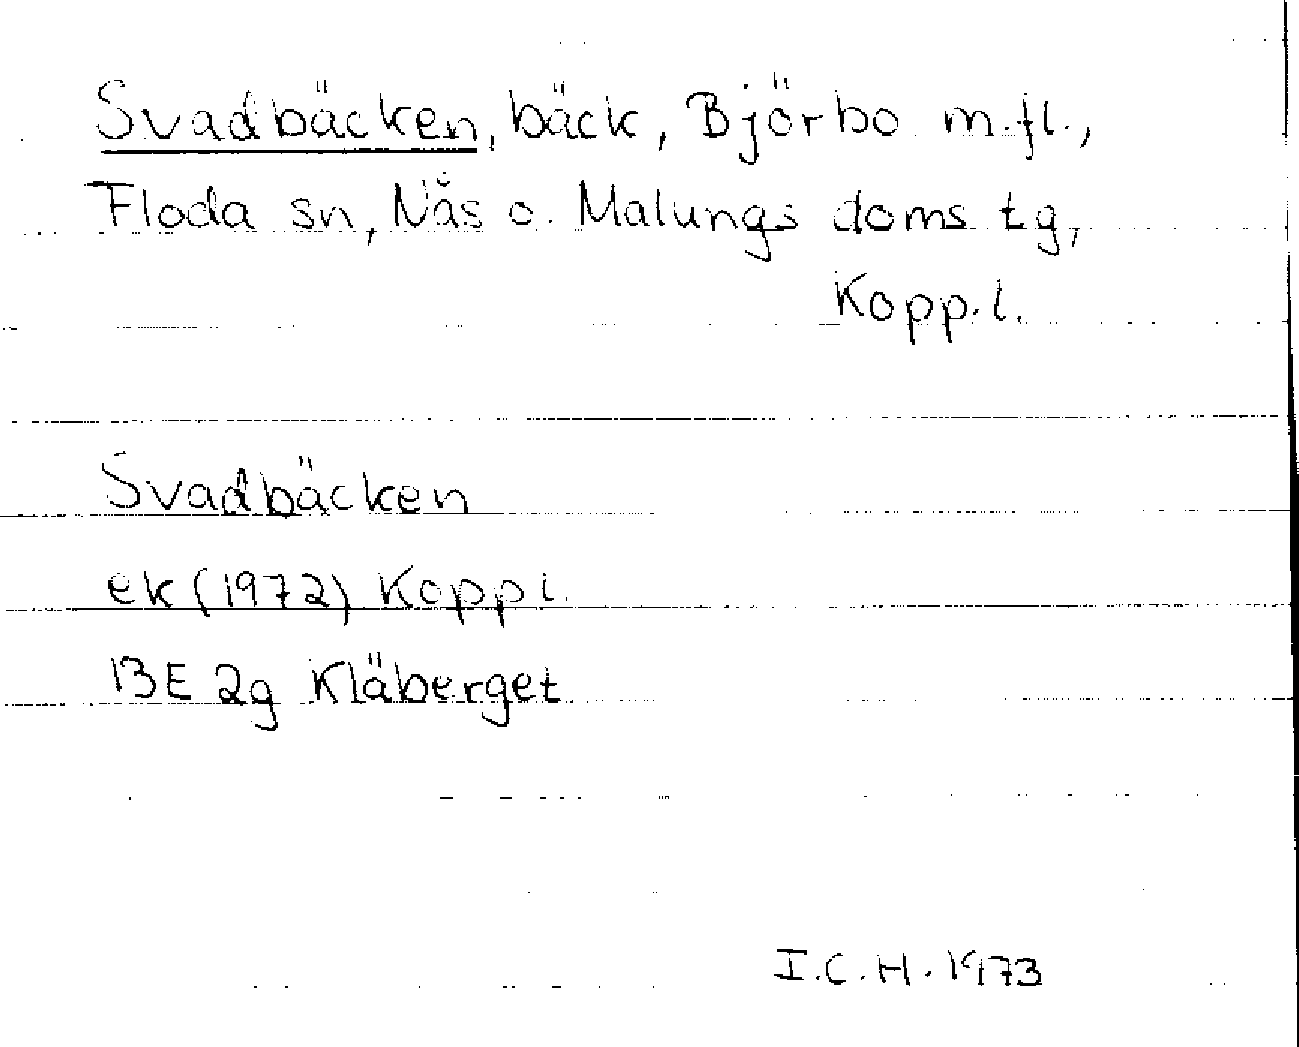 Svadbäcken, bäck, Björbo m.fl.,
Floda sn, Nås o. Malungs doms tg,
Kopp.l.
Svadbäcken
ek (1972) Kopp l.
13E 2g Kläberget
I.C.H. 1973